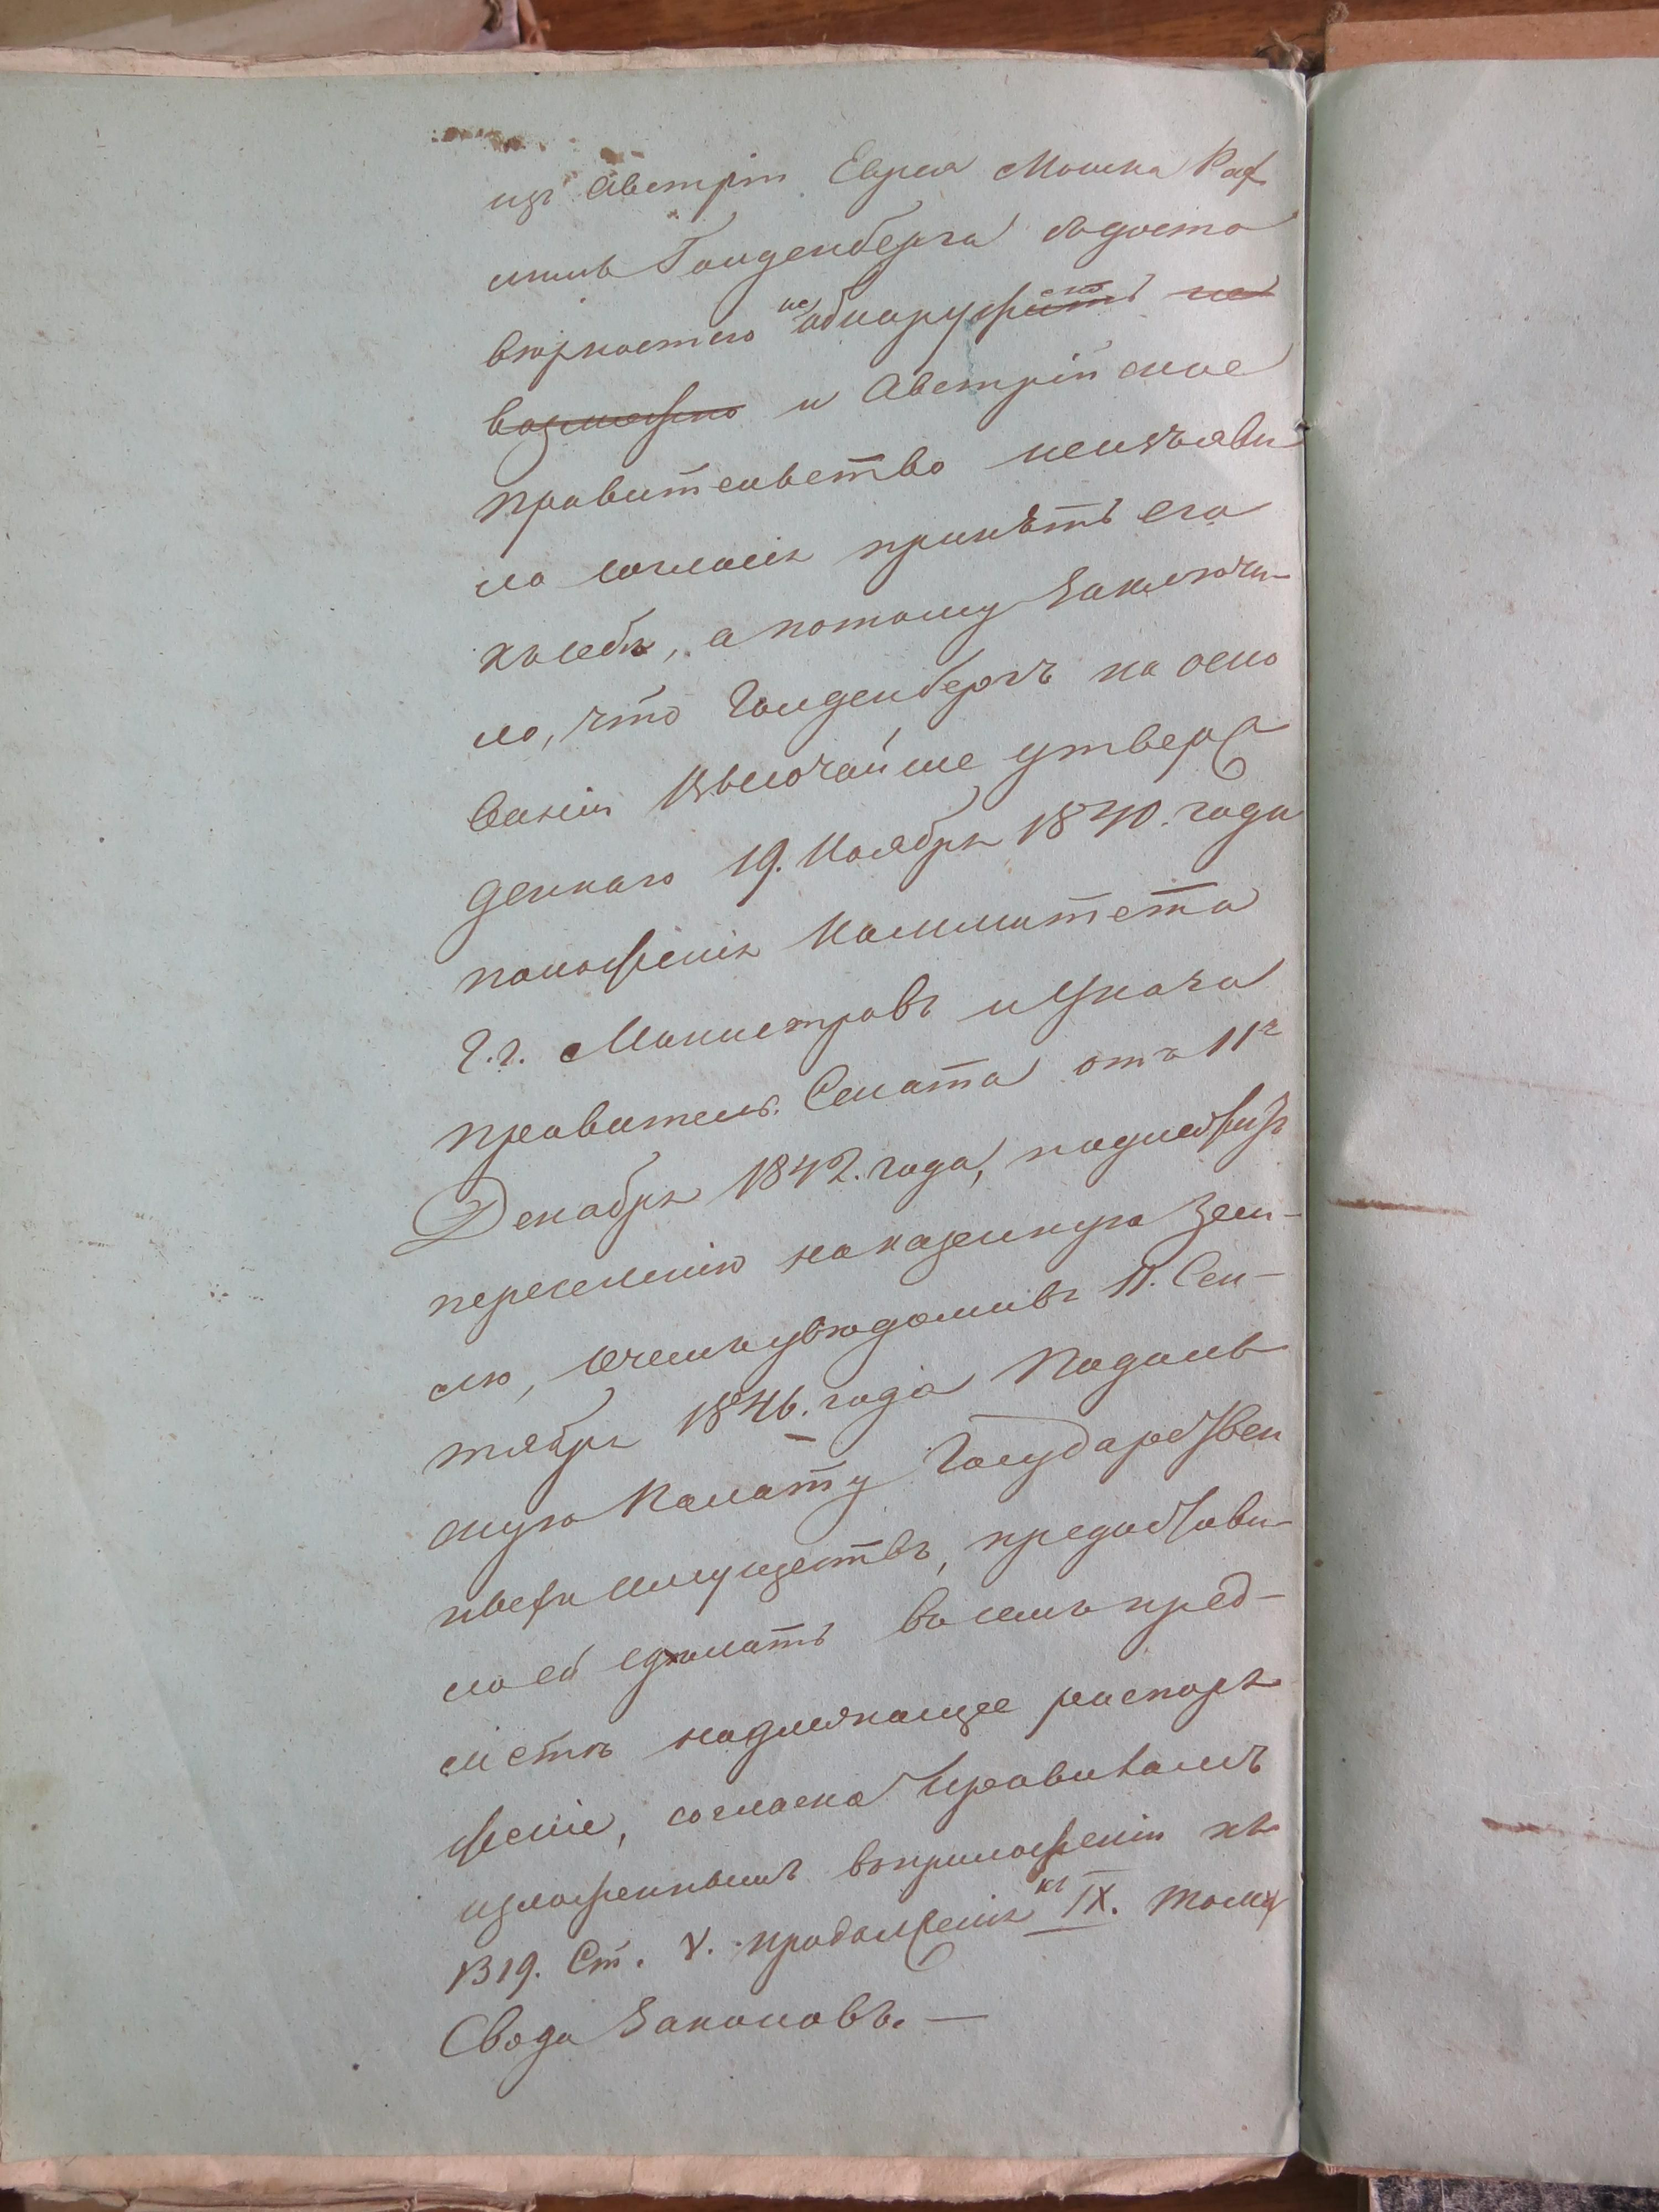 изъ Австріи Еврея Мошка Раф
иловъ Голденберга съдосто
вѣрностью не обнаружено
возможно и Австрійское
правительство неизъяви
ло согласія принять его
къ себѣ, а потому заключи-
ло, что Голденбергъ на осно
ваніи Высочайше утверж
деннаго 19. Ноября 1840. года
положенія Коммитета
Г.г. Министровъ и Указа
Правитель. Сената отъ 11го
Декабря 1842. года, подлежитъ
переселенію на казенную зем-
лю, о чемъ увѣдомивъ 11. Сен-
тября 1846. года Подоль
скую Палату Государствен
ныхъ Имуществъ, предостави-
ло ей сдѣлать въ семъ пред-
метѣ надлежащее распоря
женіе, согласно Правиламъ
изложеннымъ въ приложеніи къ
1319. Ст. V. продолженія къ IX. Тому
Свода Законовъ. —